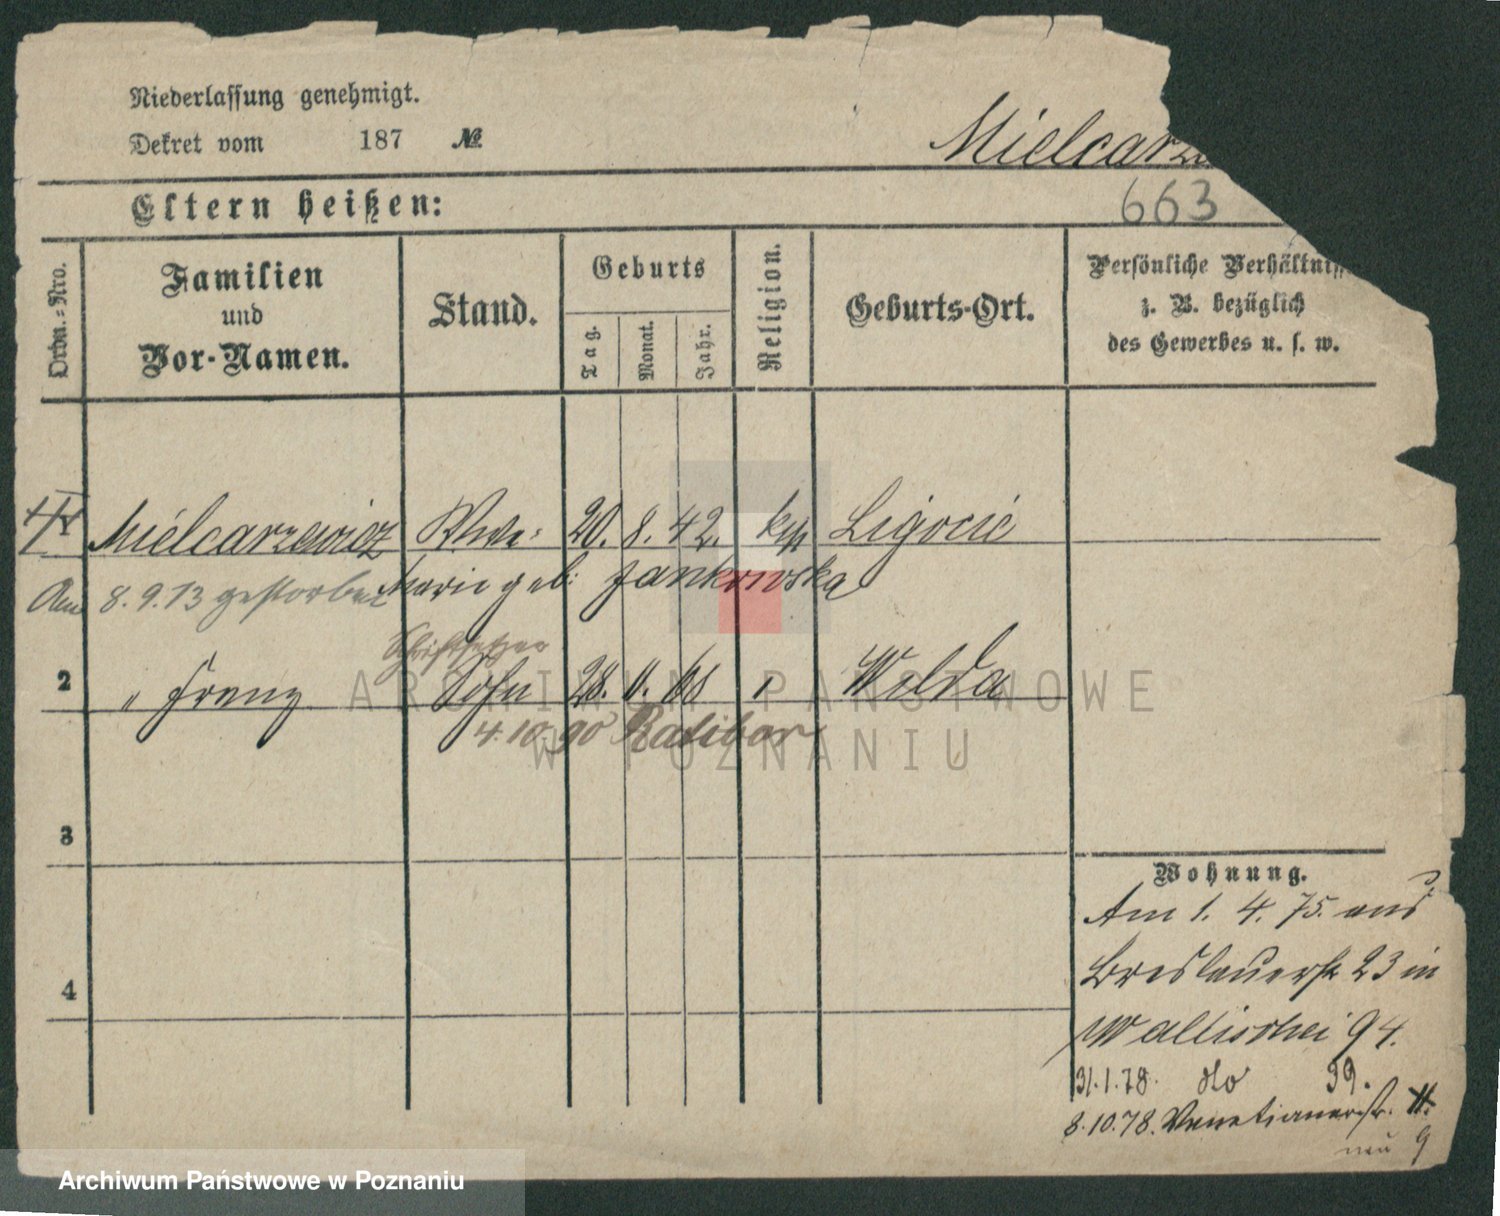 Niederlassung genehmigt.
Dekret vom 187 №
Mielcarze
663
Eltern heißen:
Ordn.-Nro.
Familien
und
Vor-Namen.
Stand.
Geburts
Tag.
Monat.
Jahr.
Religion.
Geburts-Ort.
Persönliche Verhältnisse
z. B. bezüglich
des Gewerbes u. s. w.
Mielcarzewicz Wwe: 20. 8. 42. kp Ligocie
Am 8. 9. 13 gestorben Marie geb: Jankowska
Schriftsetzer
2 " Franz Sohn 28. 11. 68 " Wilda
4.10.90 Ratibor
3
4
Wohnung.
Am 1. 4. 75. aus
Breslauerstr 23 in
Wallischei 94.
31.1.78. do 39.
8.10.78. Venetianerstr. 11.
neu 9
ARCHIWUM PAŃSTWOWE
W POZNANIU
Archiwum Państwowe w Poznaniu